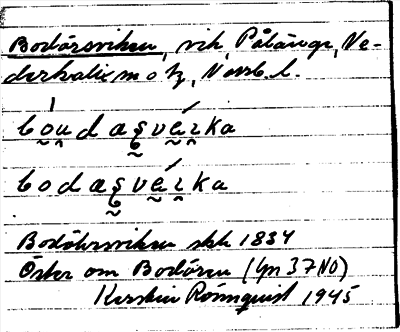 Bodörsviken, vik, Pålänge, Ne-
derkalix s:n o tg, Norrb. l.
bo̯u̯dæʂvéi̯ka
bodæʂvéi̯ka
Bodöhrsviken skk 1834
Öster om Bodören (Gp 37 NO)
Kerstin Rönnquist 1945